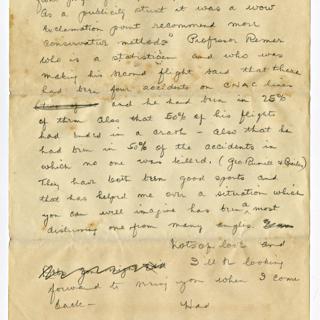 As a publicity stunt it was a wow
exclamation point recommend more
conservative methods" Professor Remer
who is a statistician and who was
making his second flight said that there
had been four accidents on CNAC lines
and he had been in 25%
of them also that 50% of his flights
had ended in a crash - Also that he
had been in 50% of the accidents in
which no one was killed. (Geo
They have both been good sports and
that has helped me over a situation which
you can well imagine has been a most
distressing one from many angles
Lots of love and
I'll be looking
forward to seeing you when I come
back -
Had